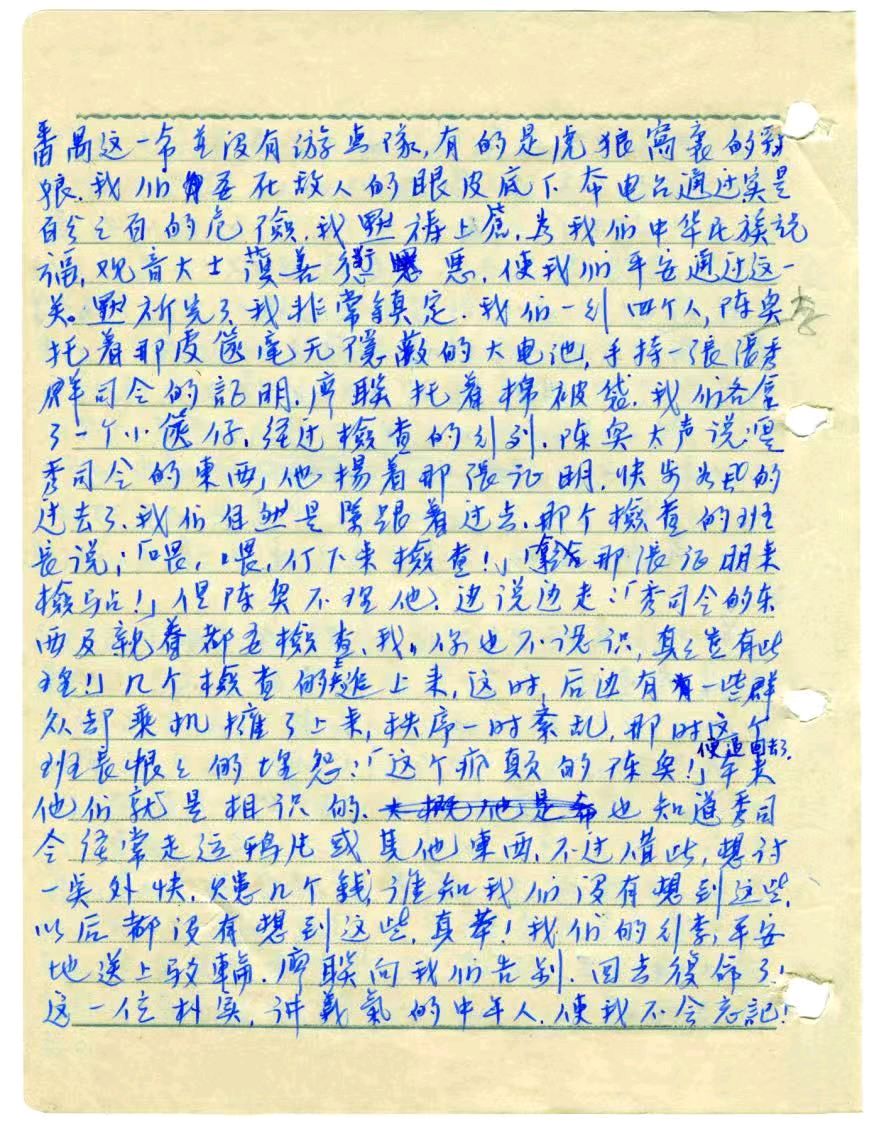 番禺这一帶並没有游击隊,有的是虎狼窩裏的豺
狼.我们要在敌人的眼皮底下 带电台通过实是
百分之百的危險.我默禱上蒼.为我们中华民族祝
福,观音大士 獎善懲惡,使我们平安通过这一
关。默祈完了,我非常鎮定.我们一行四个人,陈奥
托着那皮篋毫无隱蔽的大电池,手持一張張秀
群司令的証明.廖联托着棉被袋.我们各拿
了一个小篋仔,经过檢查的行列.陈奥大声说:「这是
秀司令的東西」他揚着那張证明.快步如飛的
过去了.我们自然是緊跟着过去.那个檢查的班
長说;「喂,喂,停下来檢查!」「拿 那張证明来
檢驗!」但陈奥不理他,边说边走:「秀司令的东
西及親眷都要檢查,我,你也不認识,真々豈有此
理!」几个檢查的追上来,这时,后边有一些群
众却乘机擁了上来,秩序一时紊乱,那时这个
班長恨々的埋怨:「这个瘋顛的陈奥!」便退回去了.本来
他们就是相识的.也知道秀司
令经常走运鸦片或其他東西,不过借此,想讨
一笑外快,欠惠几个錢,谁知我们没有想到这些,
以后都没有想到这些,真莽!我们的行李,平安
地送上駁輪.廖联向我们告别.回去復命了!
这一位朴实,讲義氣的中年人.使我不会忘記!